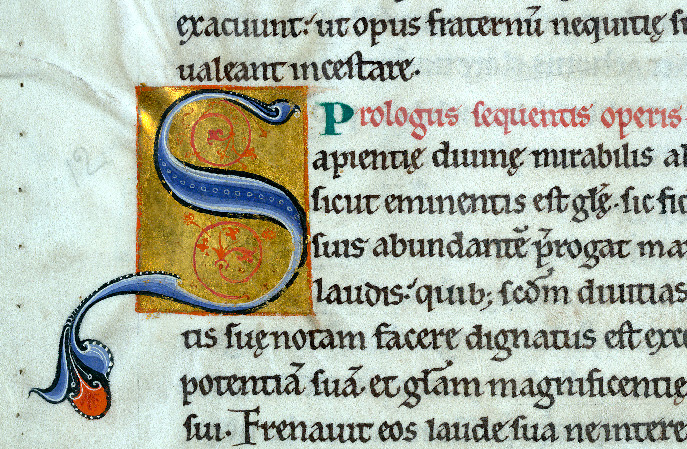 exacuunt: ut opus fraternū nequitię
ualeant incestare.
Prologus sequentis operis
Sapientię diuinę mirabilis
sicut eminentis est glę. sic
suis abundantē p̄rogat
laudis. quib; scdm̄ diuitias
tis suę notam facere dignatus est
potentiā suā. et glām magnificentię
sui. Frenauit eos laude sua ne